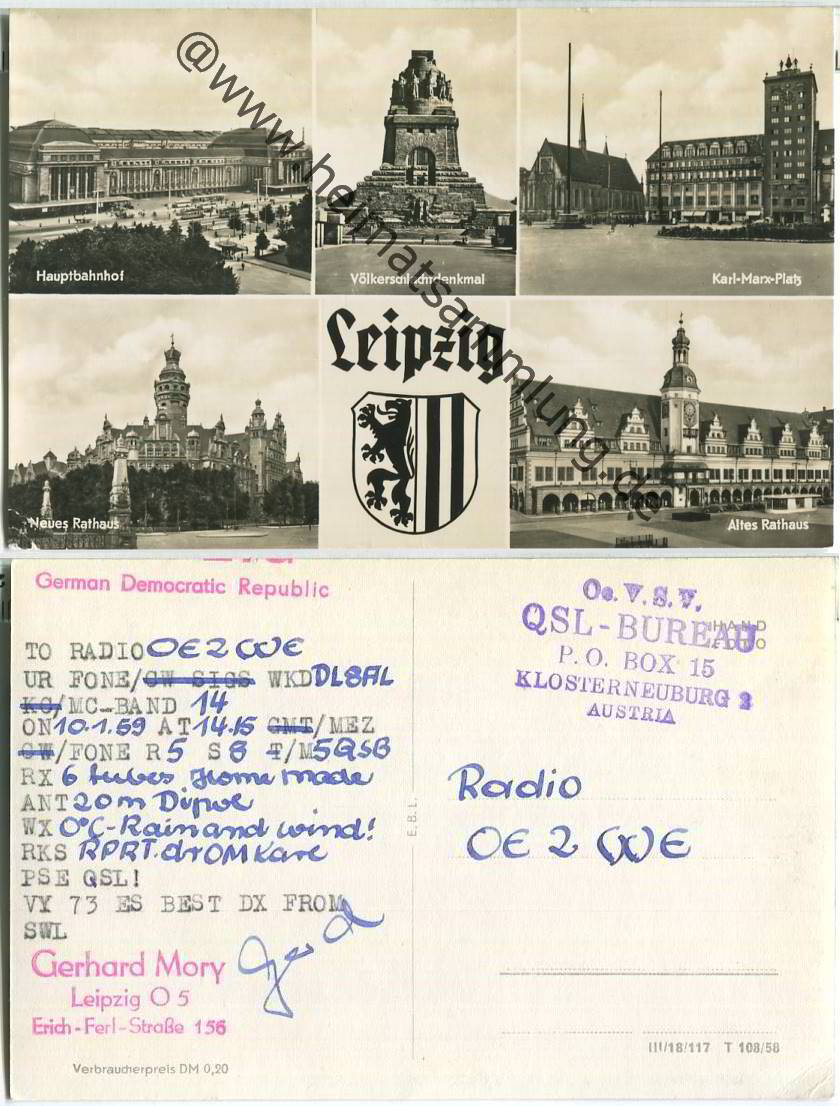 Hauptbahnhof
Völkerschlachtdenkmal
Karl-Marx-Platz
Leipzig
Neues Rathaus
Altes Rathaus
@www.heimatsammlung.de
German Democratic Republic
TO RADIO OE2WE
UR FONE/CW SIGS WKD DL8AL
KC/MC-BAND 14
ON 10.1.59 AT 14.15 GMT/MEZ
CW/FONE R 5 S 8 T/M 5 QSB
RX 6 tubes Home made
ANT 20m Dipol
WX 0°C-Rain and wind!
RKS RPRT. dr OM Karl
PSE QSL!
VY 73 ES BEST DX FROM
SWL
Gerd
Gerhard Mory
Leipzig O 5
Erich-Ferl-Straße 156
Verbraucherpreis DM 0,20
E.B.L.
Oe. V. S. V.
QSL-BUREAU
P.O. BOX 15
KLOSTERNEUBURG 2
AUSTRIA
HAND
FOTO
Radio
OE2WE
III/18/117 T 108/58